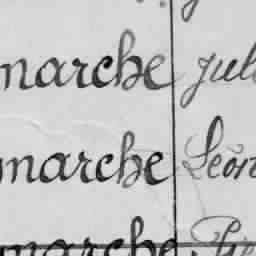 marche Jul
marche Léon
marche Pie